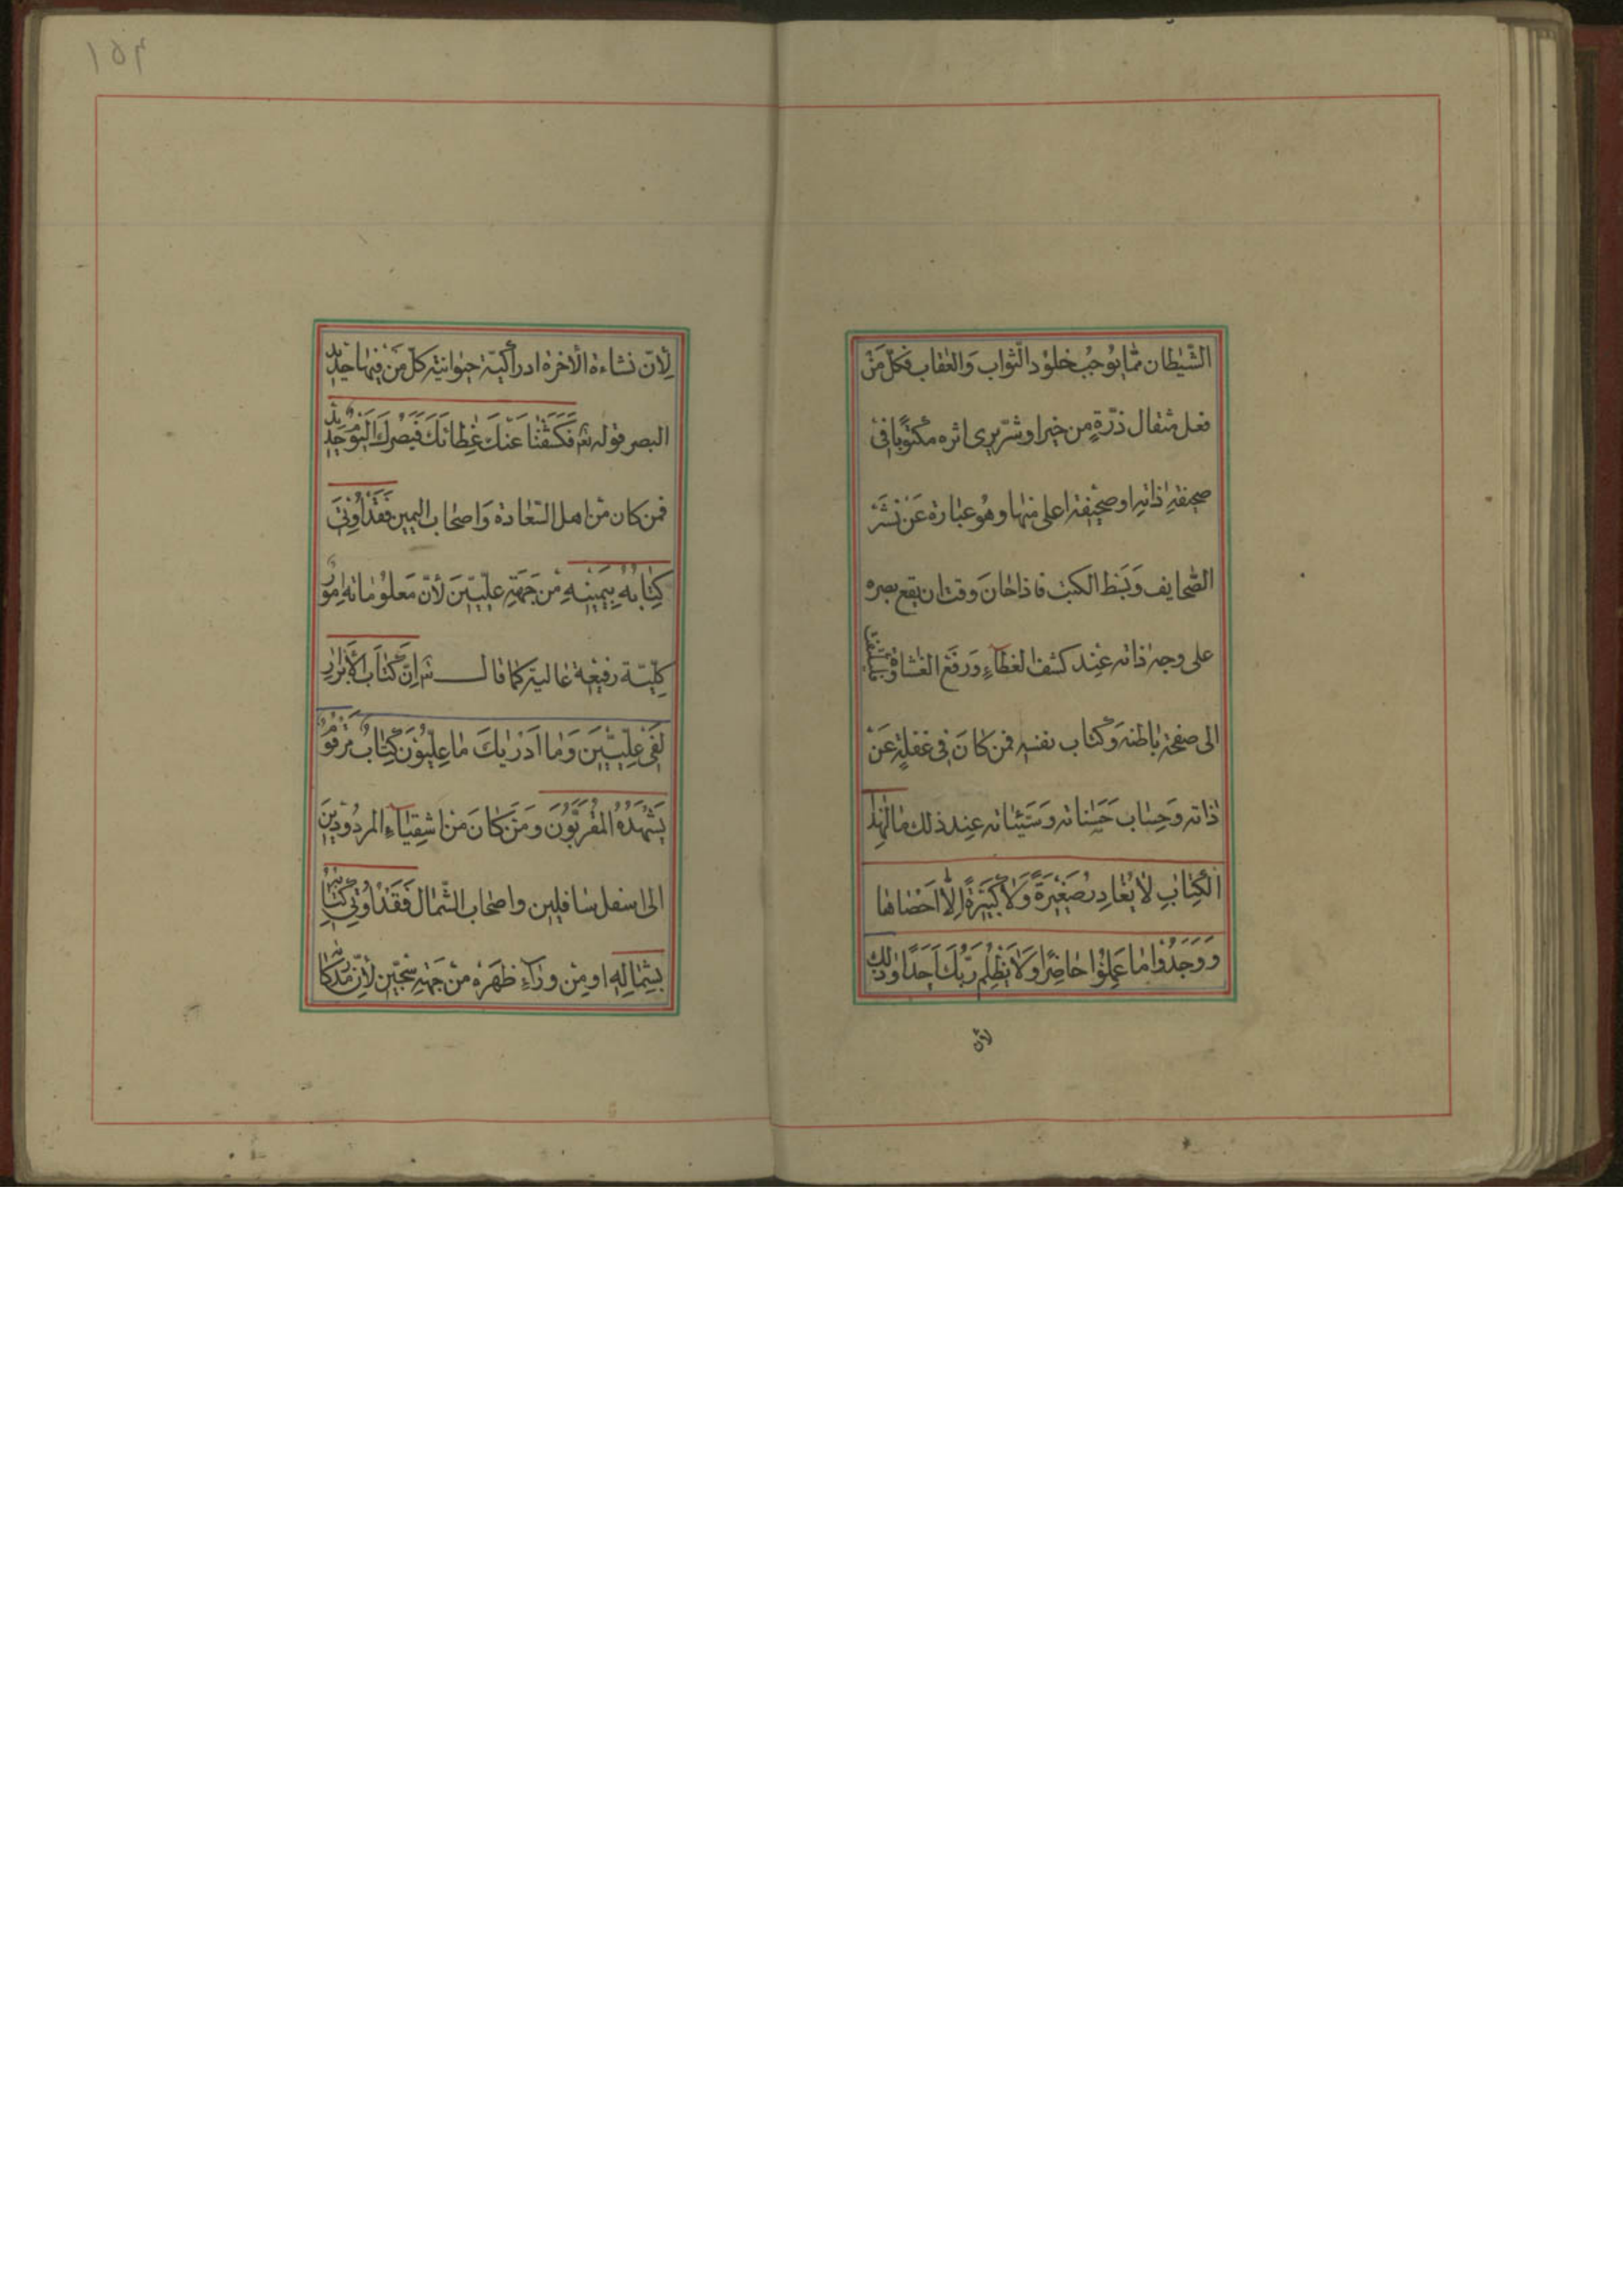 الشّيطان ممّا يُوجبُ خلود الثّواب وَالعقاب فكلّ مَنْ
فعل مثقال ذرّةٍ من خير او شرّ يرى اثره مكتوبًا فى
صحيفةِ ذاتهِ او صحيفة اعلى منها وهُو عبارة عَن نشر
الصّحايف وَبَسط الكتب فاذا حانَ وقت ان يقع بصره
على وجه ذاته عِند كشف الغطآءِ وَرفَع الغشاوة
الى صفحة باطنه وَكتاب نفسهِ فمن كانَ فى غفلةٍ عَنْ
ذاته وَحِساب حَسَناته وَسَيّئاته عِند ذلك مَا لِهٰذَا
الْكِتابِ لا يُغادِرُ صَغيرَةً وَلا كَبيرَةً اِلّا اَحْصاها
وَوَجَدُوا ما عَمِلُوا حاضِرًا وَلا يَظْلِمُ رَبُّكَ اَحَدًا وَذلِك
لأن
١٥٢
لِأنّ نشاءة الأخرة ادراكيّة حيوانيّة كلّ مَن فيها حَديد
البصر قوله تع فَكَشَفْنا عَنْكَ غِطائَكَ فَبَصَرُكَ الْيَوْمَ حَديدٌ
فمن كان من اهل السّعادة وَاصحاب اليمين فَقَدْ اُوتِىَ
كِتابَهُ بِيَمينِهِ من جَهَةِ علّيّينَ لأنّ مَعلوماته اِمورٌ
كلّيّة رفيعة عالية كما قال تع اِنَّ كِتابَ الْأَبْرارِ
لَفى عِلّيّينَ وَما اَدْريٰكَ ما عِلِّيُّونَ كِتابٌ مَرْقُومٌ
يَشْهَدُهُ الْمُقَرَّبُونَ وَمَن كانَ من اشقيآءِ المردُودينَ
الى اسفل سافلين واصحاب الشّمال فَقَدْ اُوتِىَ كِتابَهُ
بِشِمالِهِ او مِن ورآءِ ظَهرَهُ من جَهَةِ سِجّين لأنّ مدركاته